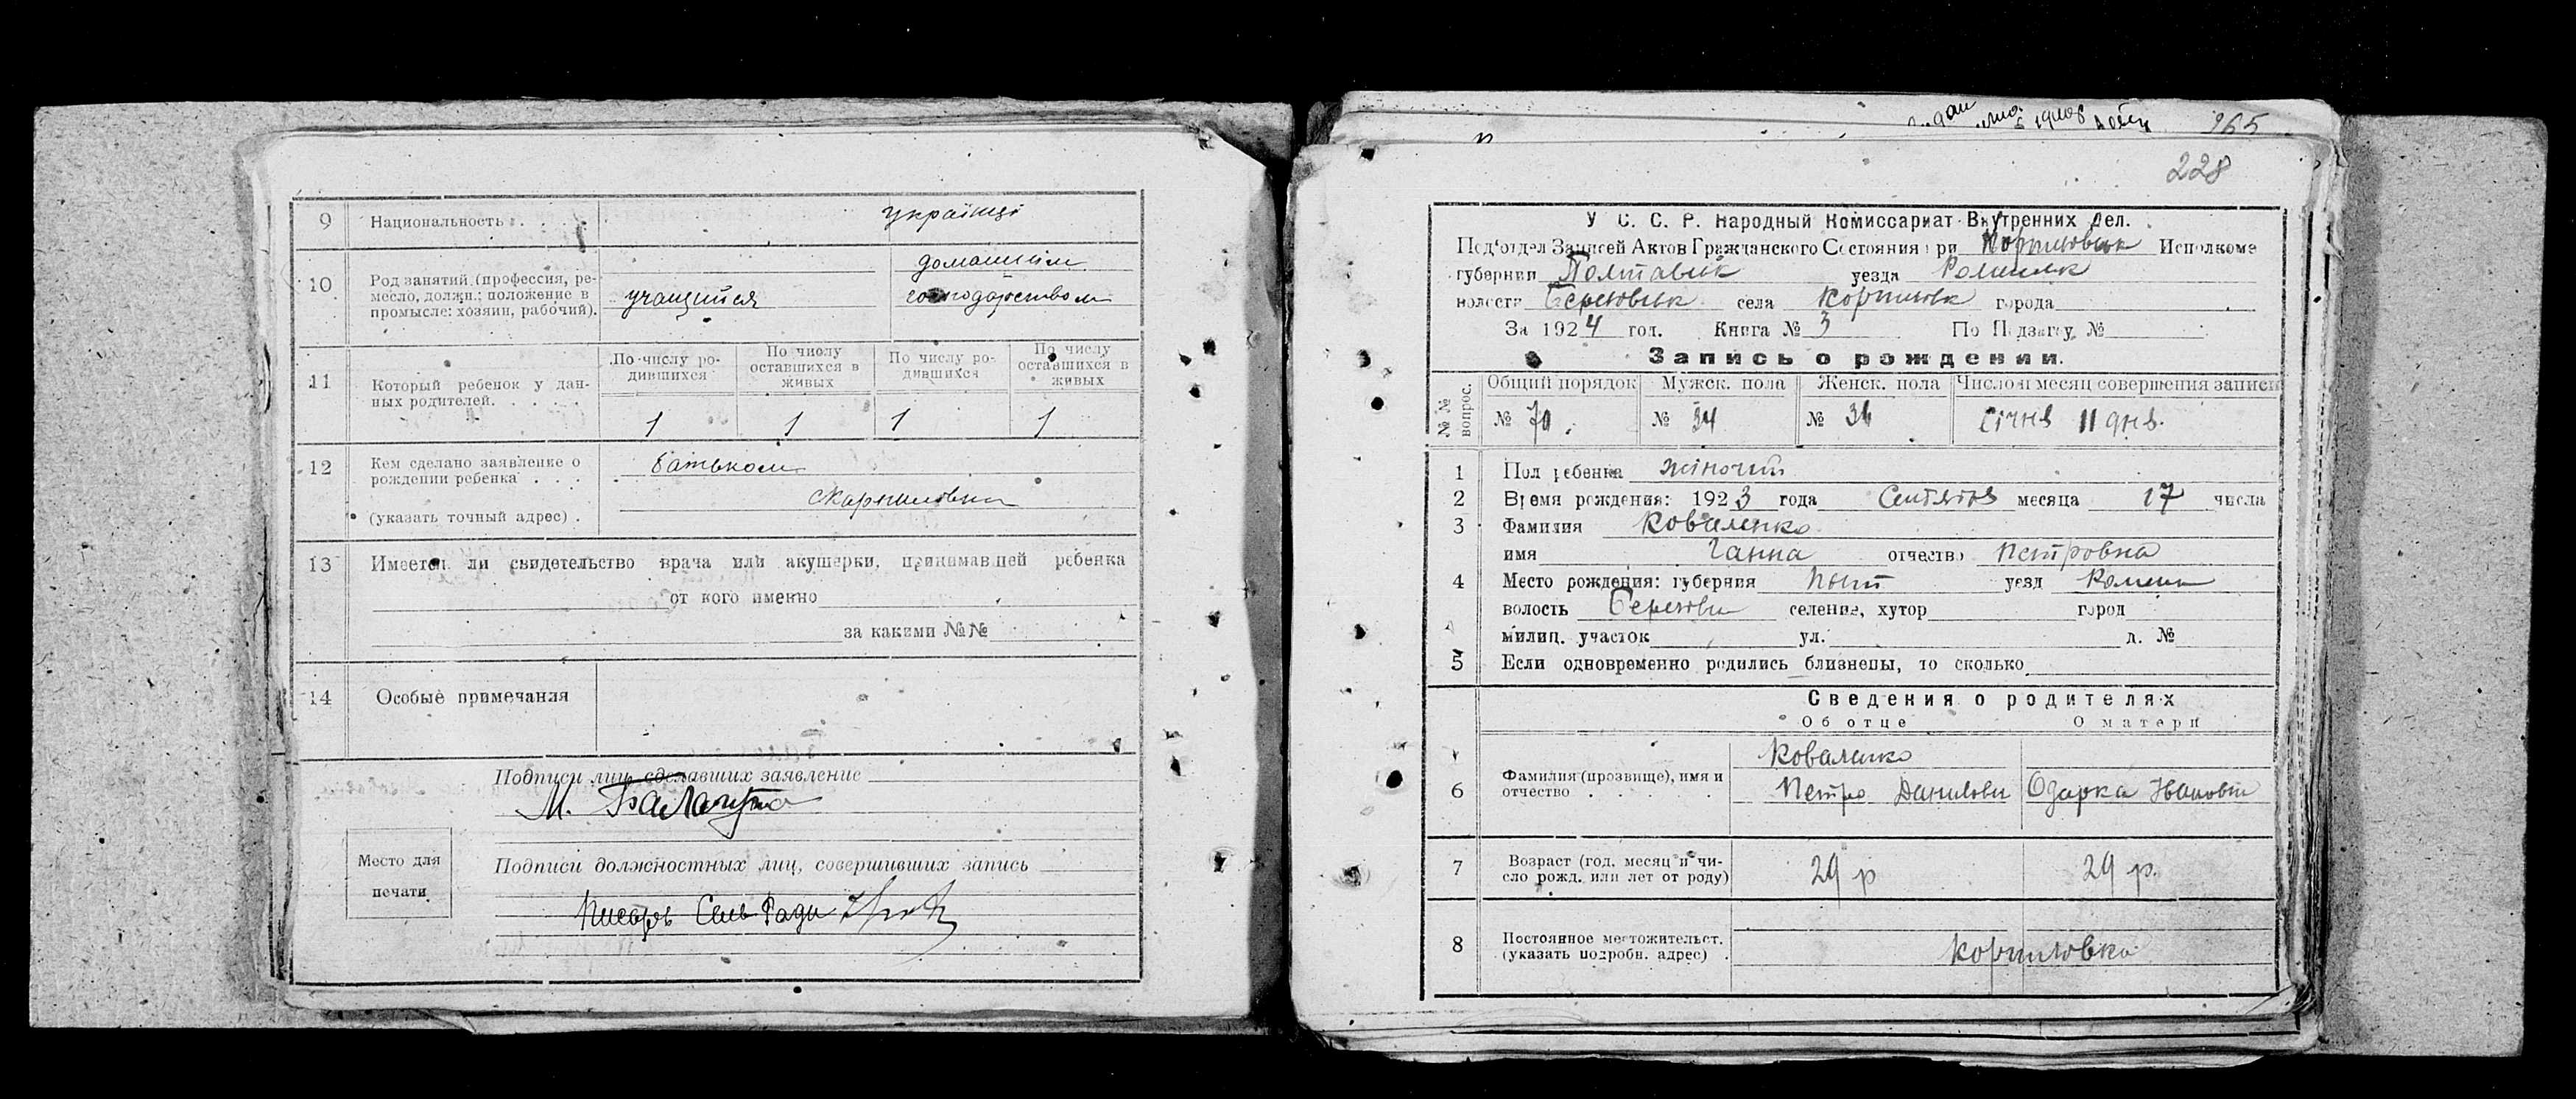 9 Национальность . . українці
10 Род занятий (профессия, ре-
месло, должн.; положение в
промысле: хозяин, рабочий).
учащийся
домашнім
господарством
11 Который ребенок у дан-
ных родителей. . . . .
По числу ро-
дившихся
По числу
оставшихся в
живых
По числу ро-
дившихся
По числу
оставшихся в
живых
1 1 1 1
12 Кем сделано заявление о
рождении ребенка . . .
(указать точный адрес) .
батьком
13 Имеется ли свидетельство врача или акушерки, принимавшей ребенка
от кого именно
за какими №№
14 Особые примечания
Подписи лиц, сделавших заявление
М.
Место для
печати
Подписи должностных лиц, совершивших запись
Писарь Сель Ради
965
228
У С. С. Р. Народный Комиссариат Внутренних Дел.
Под'отдел Записей Актов Гражданского Состояния при Исполкоме
губернии Полтавськ уезда Роменськ
волости села города
За 1924 год. Книга № 3 По Подзагсу №
Запись о рождении.
№ № вопрос.
Общий порядок Мужск. пола Женск. пола Число и месяц совершения записи
№ 70. № 34 № 36 січня 11 дня.
1 Пол ребенка жіночий
2 Время рождения: 1923 года месяца 17 числа
3 Фамилия Коваленко
имя Ганна отчество Петровна
4 Место рождения: губерния Полт уезд Роменск
волость селение, хутор город
милиц. участок ул. д. №
5 Если одновременно родились близнецы, то сколько
Сведения о родителях
Об отце О матери
6 Фамилия (прозвище), имя и
отчество . . . . .
Коваленко
Петро Данилови Одарка Ивановна
7 Возраст (год, месяц и чи-
сло рожд. или лет от роду)
29 р 29 р.
8 Постоянное местожительст.
(указать подробн. адрес) .